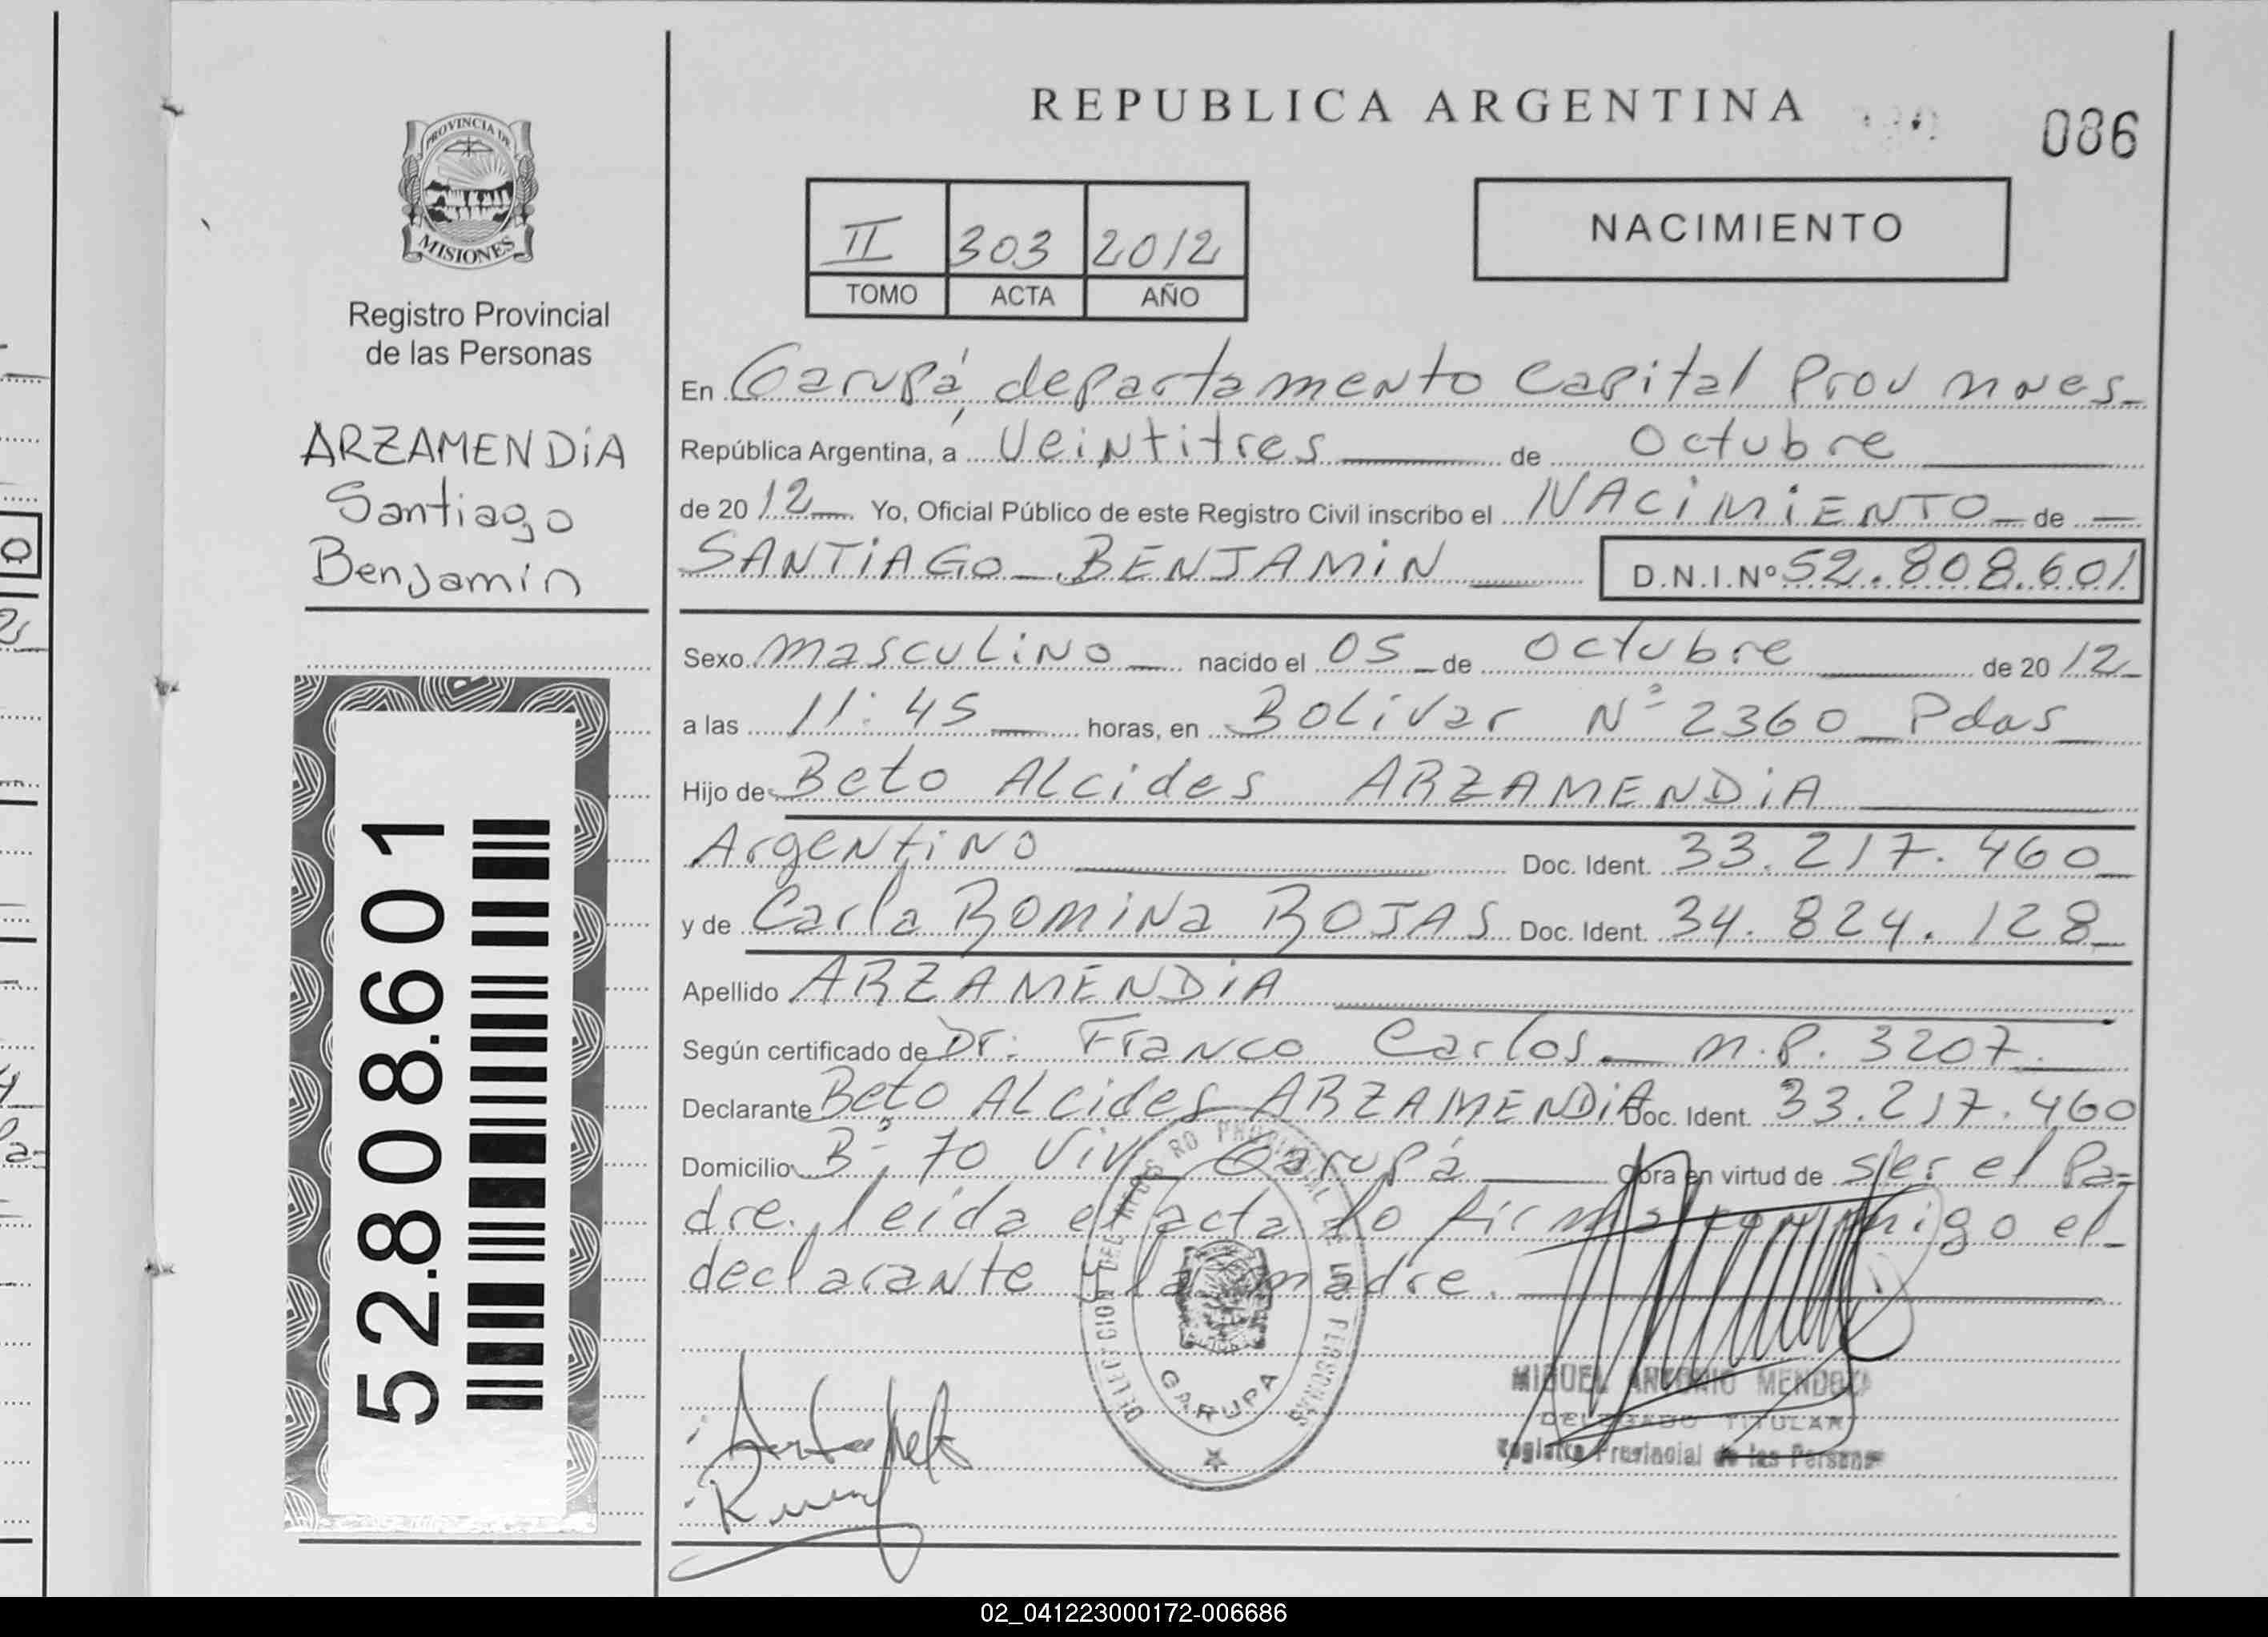 REPUBLICA ARGENTINA
086
PROVINCIA DE
MISIONES
Registro Provincial
de las Personas
II 303 2012
TOMO ACTA AÑO
NACIMIENTO
ARZAMENDiA
Santiago
Benjamín
52.808.601
En Garupá, departamento Capital Prov mnes_
República Argentina, a Veintitres de Octubre
de 2012 Yo, Oficial Público de este Registro Civil inscribo el NACiMiENTO de
SANTiAGO BENJAMiN D.N.I.Nº 52.808.601
Sexo masculino nacido el 05 de Octubre de 2012
a las 11:45 horas, en Bolivar Nº 2360 Pdas
Hijo de Beto Alcides ARZAMENDiA
Argentino Doc. Ident. 33.217.460
y de Carla Romina ROJAS Doc. Ident. 34.824.128
Apellido ARZAMENDiA
Según certificado de Dr. Franco Carlos m.p. 3207.
Declarante Beto Alcides ARZAMENDiA Doc. Ident. 33.217.460
Domicilio Bº 70 Viv Garupá Obra en virtud de ser el Pa-
dre. leida el acta lo firma conmigo el
declarante y la madre.
GARUPA
MIGUEL ANTONIO MENDOZA
DELEGADO TITULAR
Registro Provincial de las Personas
02_041223000172-006686